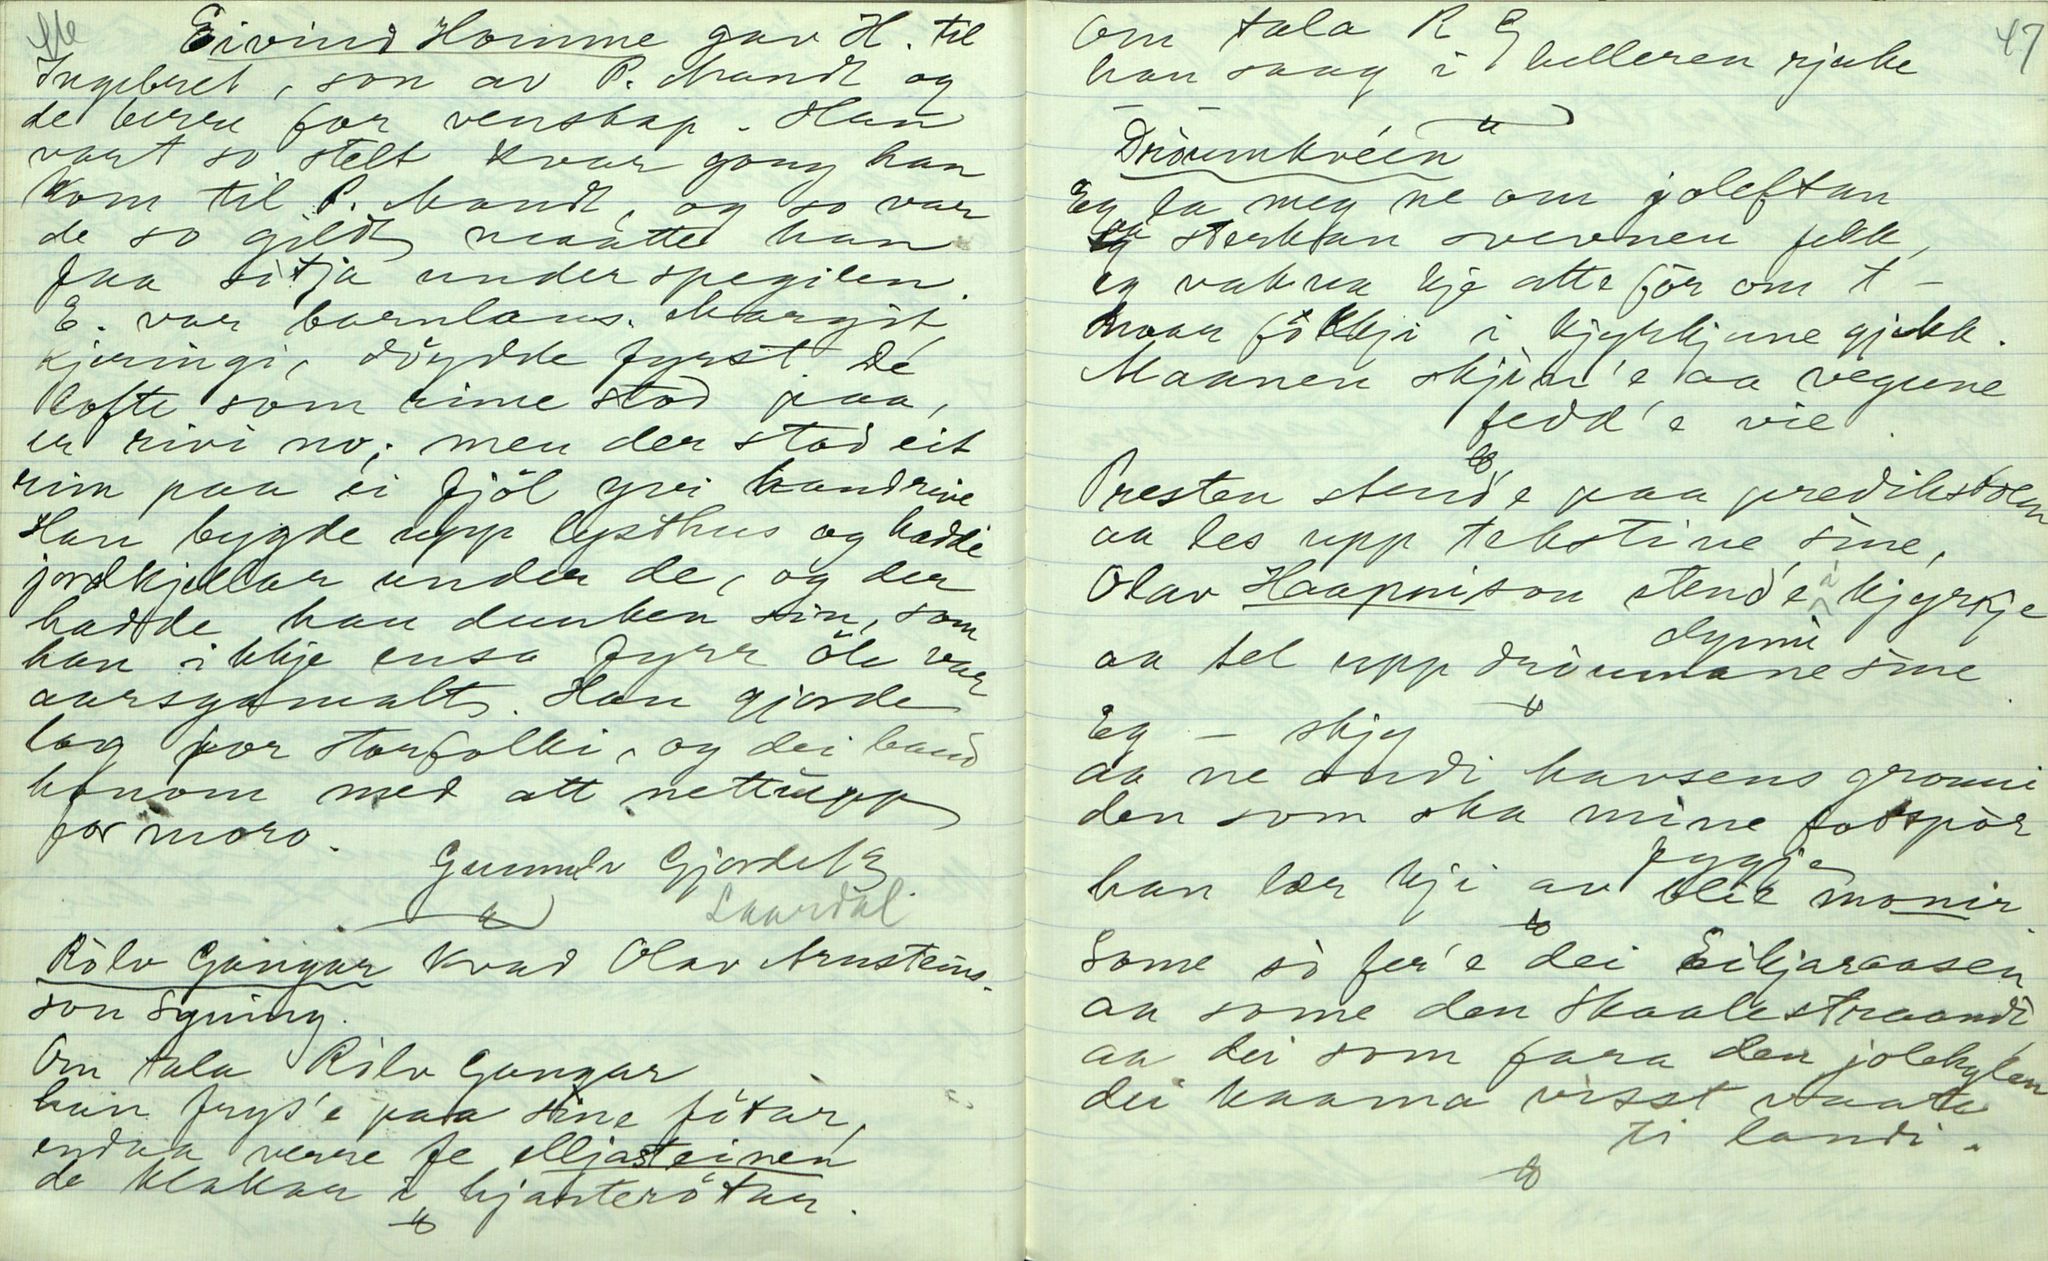 Eivind Homme gav H. til
Ingebret, son av P. Mandt og
de berre for venskap. Han
vart so stelt kvar gong han
kom til P. Mandt, og so var
de so gildt, maatte han
faa sitja under spegilen.
E. var barnlaus. Margit,
kjeringi, döydde fyrst. Dé
lofte som rime stod paa,
er rivi no; men der stod eit
rim paa ei fjöl yvi
Han bygde upp lysthus og hadde
jordkjellar under de, og der
hadde han dunken sin, som
han ikkje ensa fyrr öle var
aarsgamalt. Han gjorde
lag for storfolki, og dei baud
honom med att nettupp
for moro.
Gunnulv Gjordel
Laardal
Rölv Gangar kvad Olav Arnsteins-
son Syning.
Om tala Rölv Gangar
han frys'e paa sine fötar,
endaa verre fe elljasteinen
de klakar i hjarterötar.
Om tala R G
han saag i helleren rjuke
47
Dröumkvéen
Eg la meg ne om joleftan
sterkan svevnen fekk,
eg vakna kje atte för om t –
naar fökkji i kjyrkjune gjekk.
Maanen skjin'e aa vegune
fedd'e vie
Presten stend'e paa predikstolen
aa les upp tekstine sine,
Olav Haapnison stend'e i kjyrkje
dynni
aa tel upp dröumane sine
Eg – skjy
aa ne ondi havsens gronni
den som ska mine fotspòr
fyggje
han lær kji av blik monir.
Some sò fer'e dei Eikjaraasen
aa some den Skaalestraandi
aa dei som fara den jolekylen
dei kaama visst vaate
ti landi.